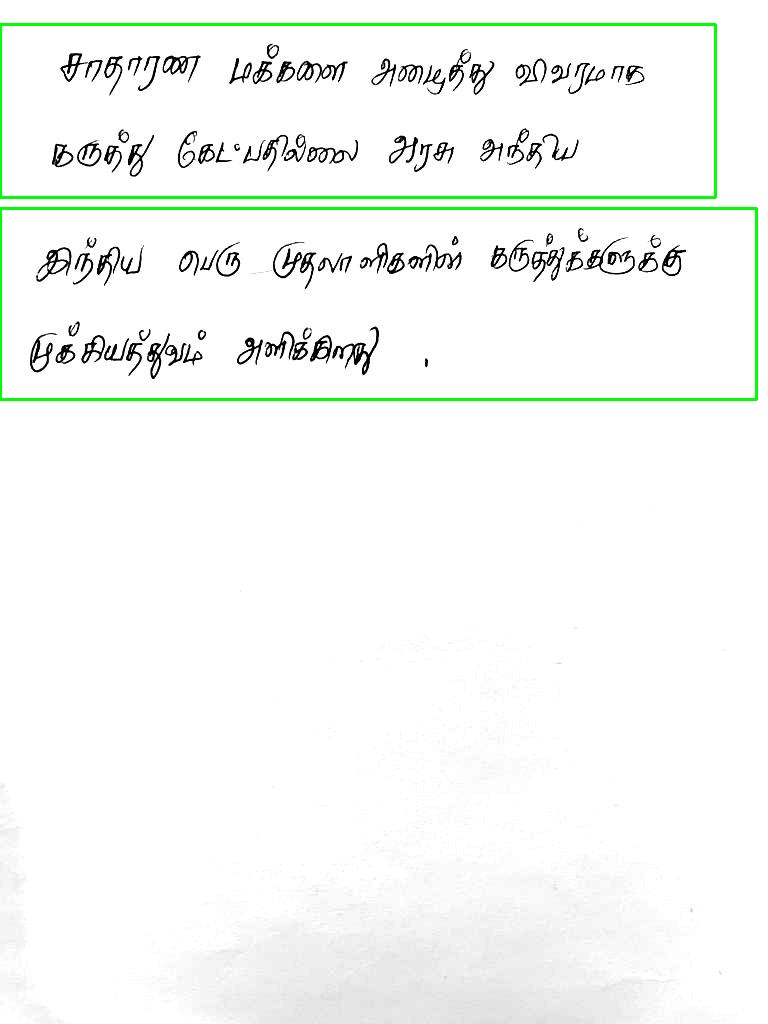 சாதாரண மக்களை அழைத்து விவரமாக
கருத்து கேட்பதில்லை அரசு அந்திய
இந்திய பெரு முதலாளிகளின் கருத்துக்களுக்கு
முக்கியத்துவம் அளிக்கிறது .